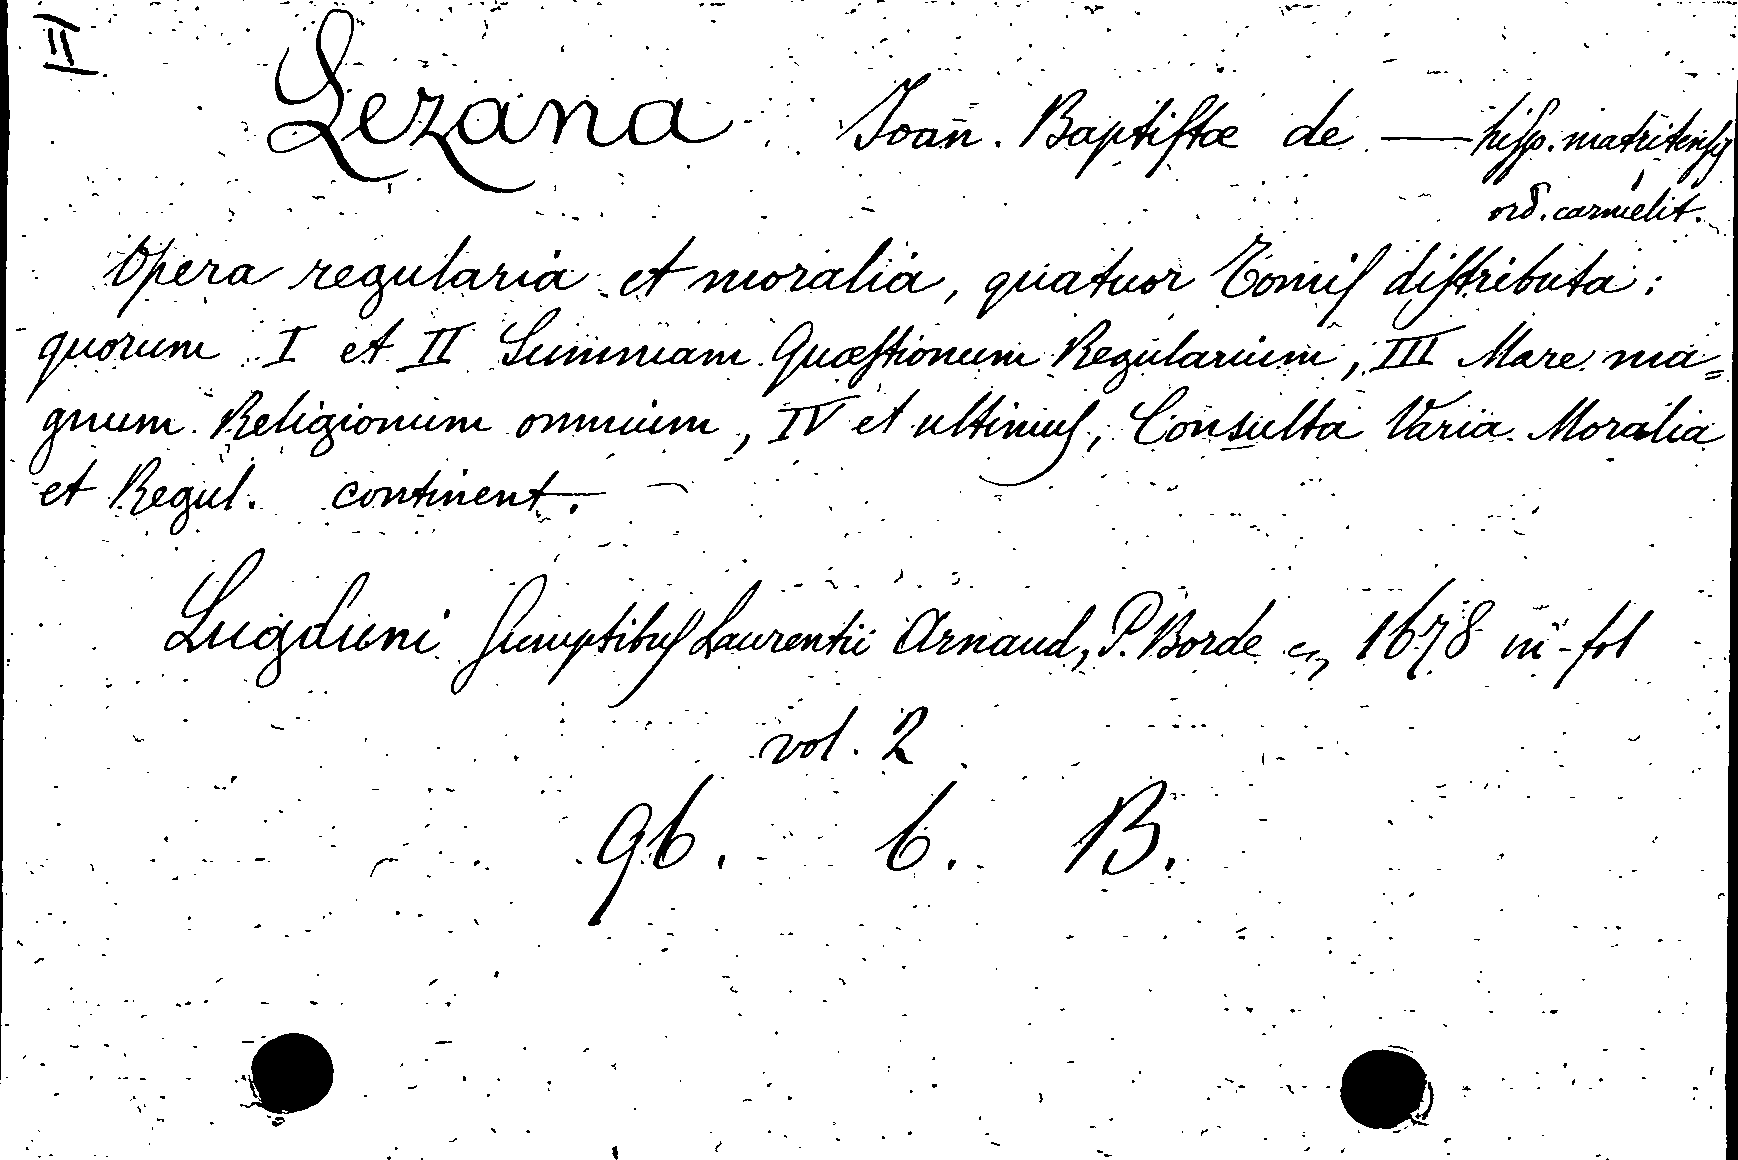 II
Lezana Joañ. Baptiſtæ de — hiſp. matritenſis
ord. carmelit.
Opera regularia et moralia, quatuor Tomiſ diſtributa:
quorum I et II Summam Quæſtionum Regularium, III Mare ma=
gnum Religionum omnium, IV et ultimuſ, Consulta Varia Moralia
et Regul. continent.
Lugduni ſumptibuſ Laurentii Arnaud, P. Borde 1678 in-fol
vol. 2
96. 6. B.